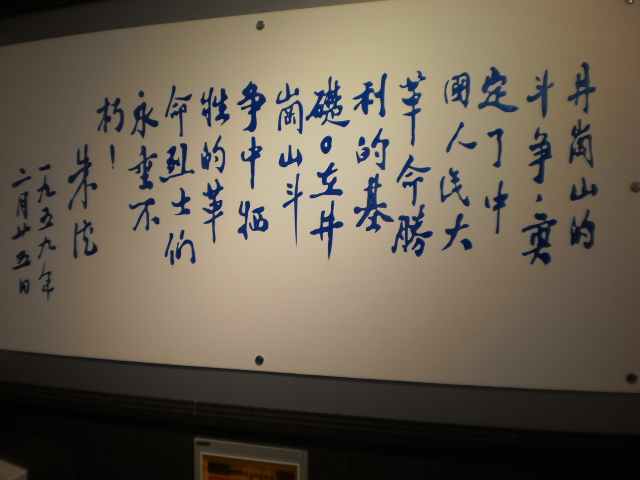 井崗山的
斗争,奠
定了中
國人民大
革命勝
利的基
礎。在井
崗山斗
争中牺
牲的革
命烈士们
永垂不
朽!
朱德
一九五九年
二月廿五日